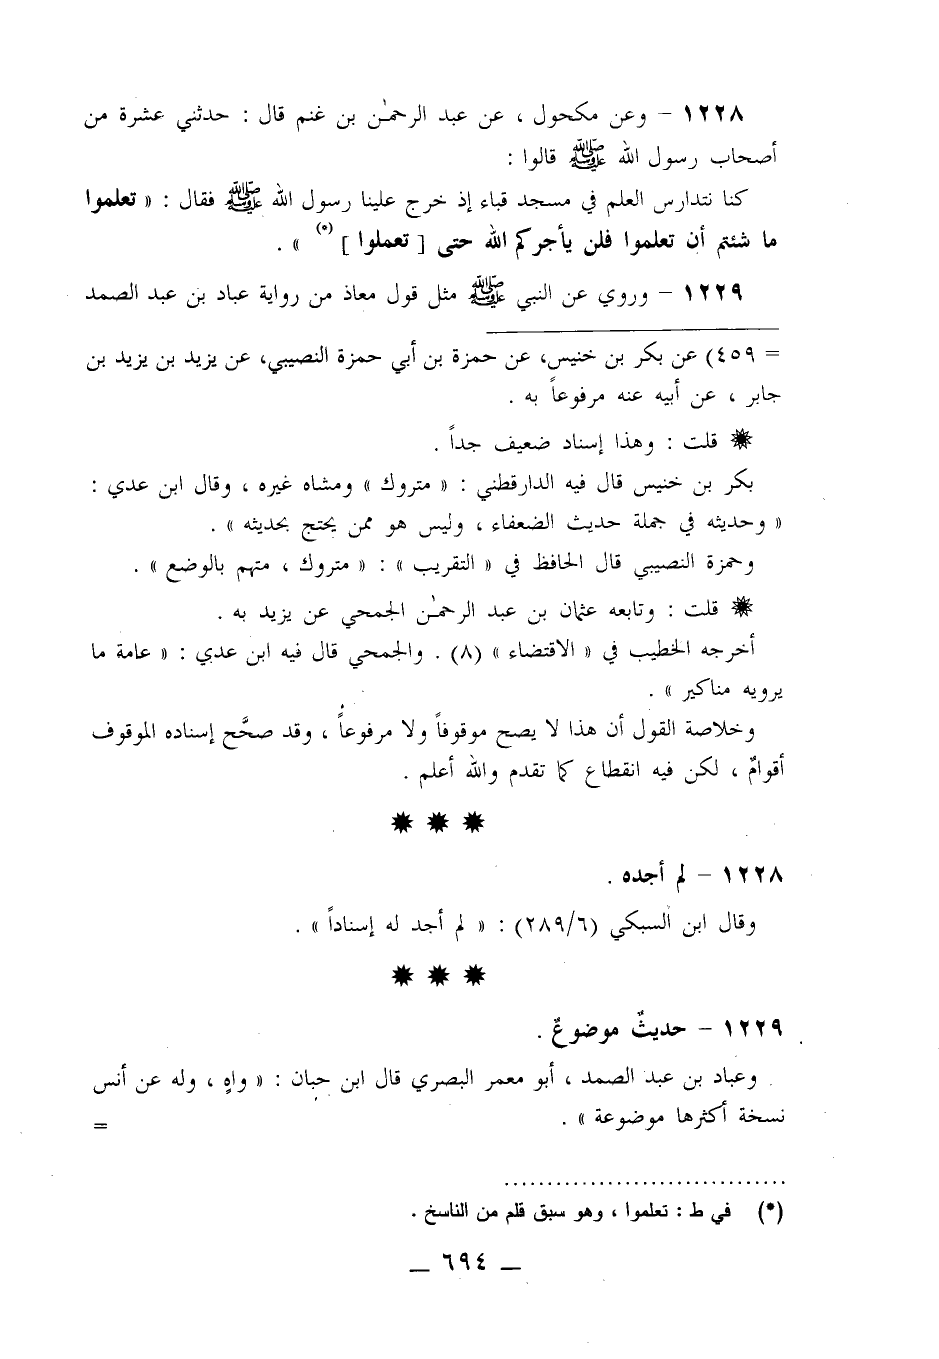 ١٢٢٨ – وعن مكحول ، عن عبد الرحمٰن بن غنم قال : حدثني عشرة من
أصحاب رسول الله ﷺ قالوا :
كنا نتدارس العلم في مسجد قباء إذ خرج علينا رسول الله ﷺ فقال : « تعلموا
ما شئتم أن تعلموا فلن يأجركم الله حتى [ تعملوا ] (*) » .
١٢٢٩ – وروي عن النبي ﷺ مثل قول معاذ من رواية عباد بن عبد الصمد
= ٤٥٩) عن بكر بن خنيس، عن حمزة بن أبي حمزة النصيبي، عن يزيد بن يزيد بن
جابر ، عن أبيه عنه مرفوعاً به .
✹ قلت : وهذا إسناد ضعيف جداً .
بكر بن خنيس قال فيه الدارقطني : « متروك » ومشاه غيره ، وقال ابن عدي :
« وحديثه في جملة حديث الضعفاء ، وليس هو ممن يحتج بحديثه » .
وحمزة النصيبي قال الحافظ في « التقريب » : « متروك ، متهم بالوضع » .
✹ قلت : وتابعه عثمان بن عبد الرحمٰن الجمحي عن يزيد به .
أخرجه الخطيب في « الاقتضاء » (٨) . والجمحي قال فيه ابن عدي : « عامة ما
يرويه مناكير » .
وخلاصة القول أن هذا لا يصح موقوفاً ولا مرفوعاً ، وقد صحَّح إسناده الموقوف
أقوامٌ ، لكن فيه انقطاع كما تقدم والله أعلم .
✹ ✹ ✹
١٢٢٨ – لم أجده .
وقال ابن السبكي (٢٨٩/٦) : « لم أجد له إسناداً » .
✹ ✹ ✹
١٢٢٩ – حديثٌ موضوعٌ .
وعباد بن عبد الصمد ، أبو معمر البصري قال ابن حبان : « واهٍ ، وله عن أنس
نسخة أكثرها موضوعة » . =
(*) في ط : تعلموا ، وهو سبق قلم من الناسخ .
— ٦٩٤ —